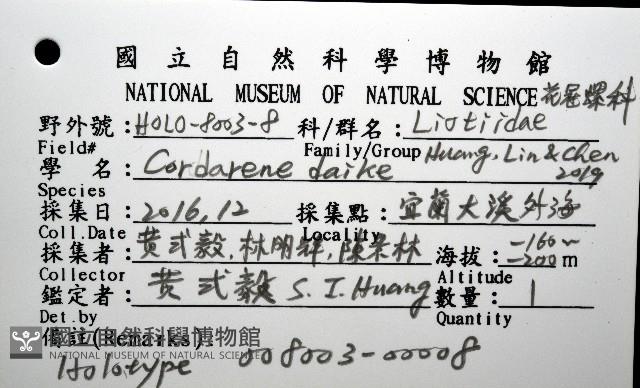 國立自然科學博物館
NATIONAL MUSEUM OF NATURAL SCIENCE 花冠螺科
野外號：HOLO-8003-8 科/群名：Liotiidae
Field# Family/Group Huang, Lin & Chen
學 名：Cordarene daike 2019
Species
採集日：2016,12 採集點：宜蘭大溪外海
Coll.Date Locality
採集者：黃式毅,林明輝,陳 林 海拔：-160~-200m
Collector Altitude
鑑定者：黃式毅 S. I. Huang 數量：1
Det.by Quantity
備註(Remarks):
國立自然科學博物館
NATIONAL MUSEUM OF NATURAL SCIENCE
Holotype 008003-00008